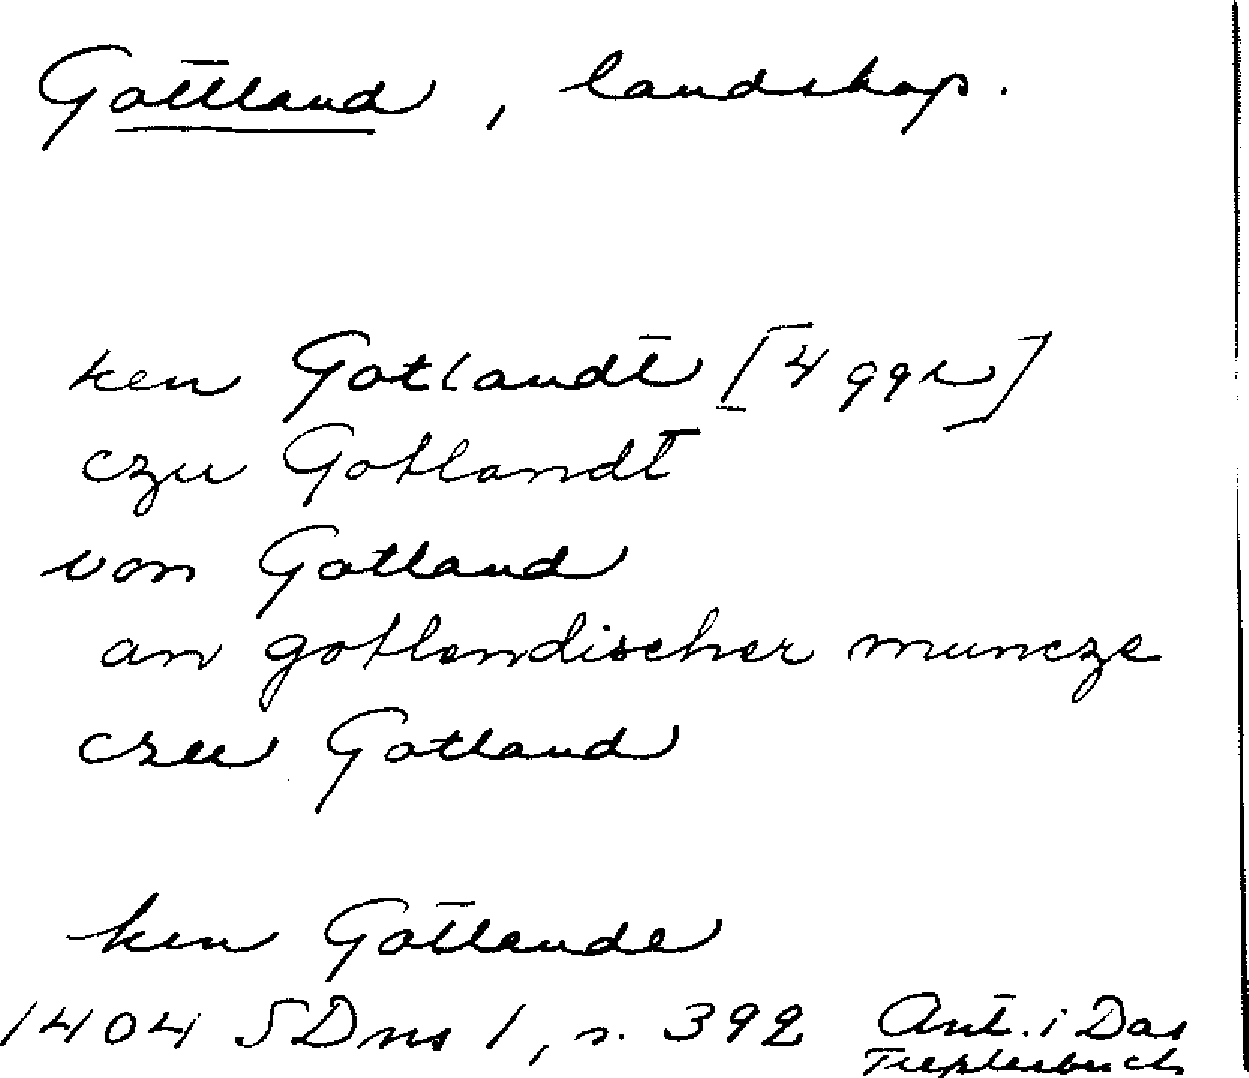 Gottland, landskap.
ken Gotlandt [4 ggr]
czu Gotlandt
von Gotland
an gotlendischer muncze
czu Gotland
ken Gotlande
1404 SDns 1, s. 392 Ant. i Das
Tresslerbuch